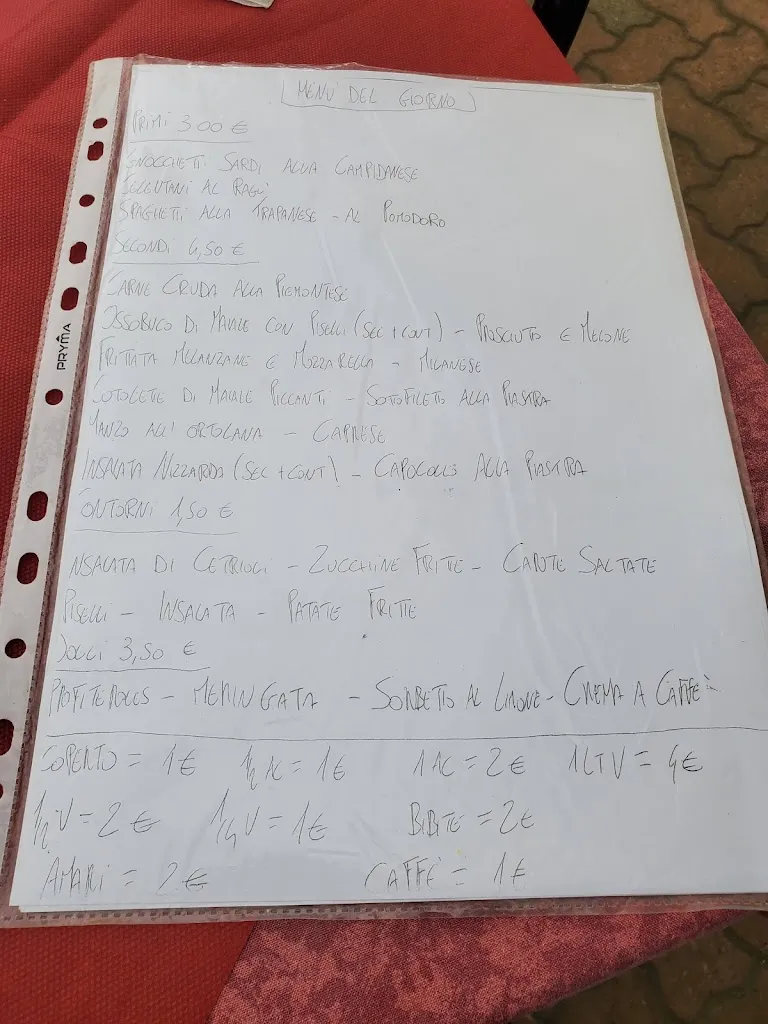 MENU' DEL GIORNO
PRIMI 3,00 €
GNOCCHETTI SARDI ALLA CAMPIDANESE
AL RAGÙ
SPAGHETTI ALLA TRAPANESE - AL POMODORO
SECONDI 4,50 €
CARNE CRUDA ALLA PIEMONTESE
OSSOBUCO DI MAIALE CON PISELLI (SEC + CONT) - PROSCIUTTO E MELONE
FRITTATA MELANZANE E MOZZARELLA - MILANESE
COTOLETTE DI MAIALE PICCANTI - SOTTOFILETTO ALLA PIASTRA
MANZO ALL'ORTOLANA - CAPRESE
INSALATA NIZZARDA (SEC + CONT) - CAPOCOLLO ALLA PIASTRA
CONTORNI 1,50 €
INSALATA DI CETRIOLI - ZUCCHINE FRITTE - CAROTE SALTATE
PISELLI - INSALATA - PATATE FRITTE
DOLCI 3,50 €
PROFITEROLES - MERINGATA - SORBETTO AL LIMONE - CREMA A CAFFÈ
COPERTO = 1€ 1/2 AC = 1€ 1 AC = 2€ 1 LT V = 4€
1/2 V = 2€ 1/4 V = 1€ BIBITE = 2€
AMARI = 2€ CAFFE' = 1€
PRYMA